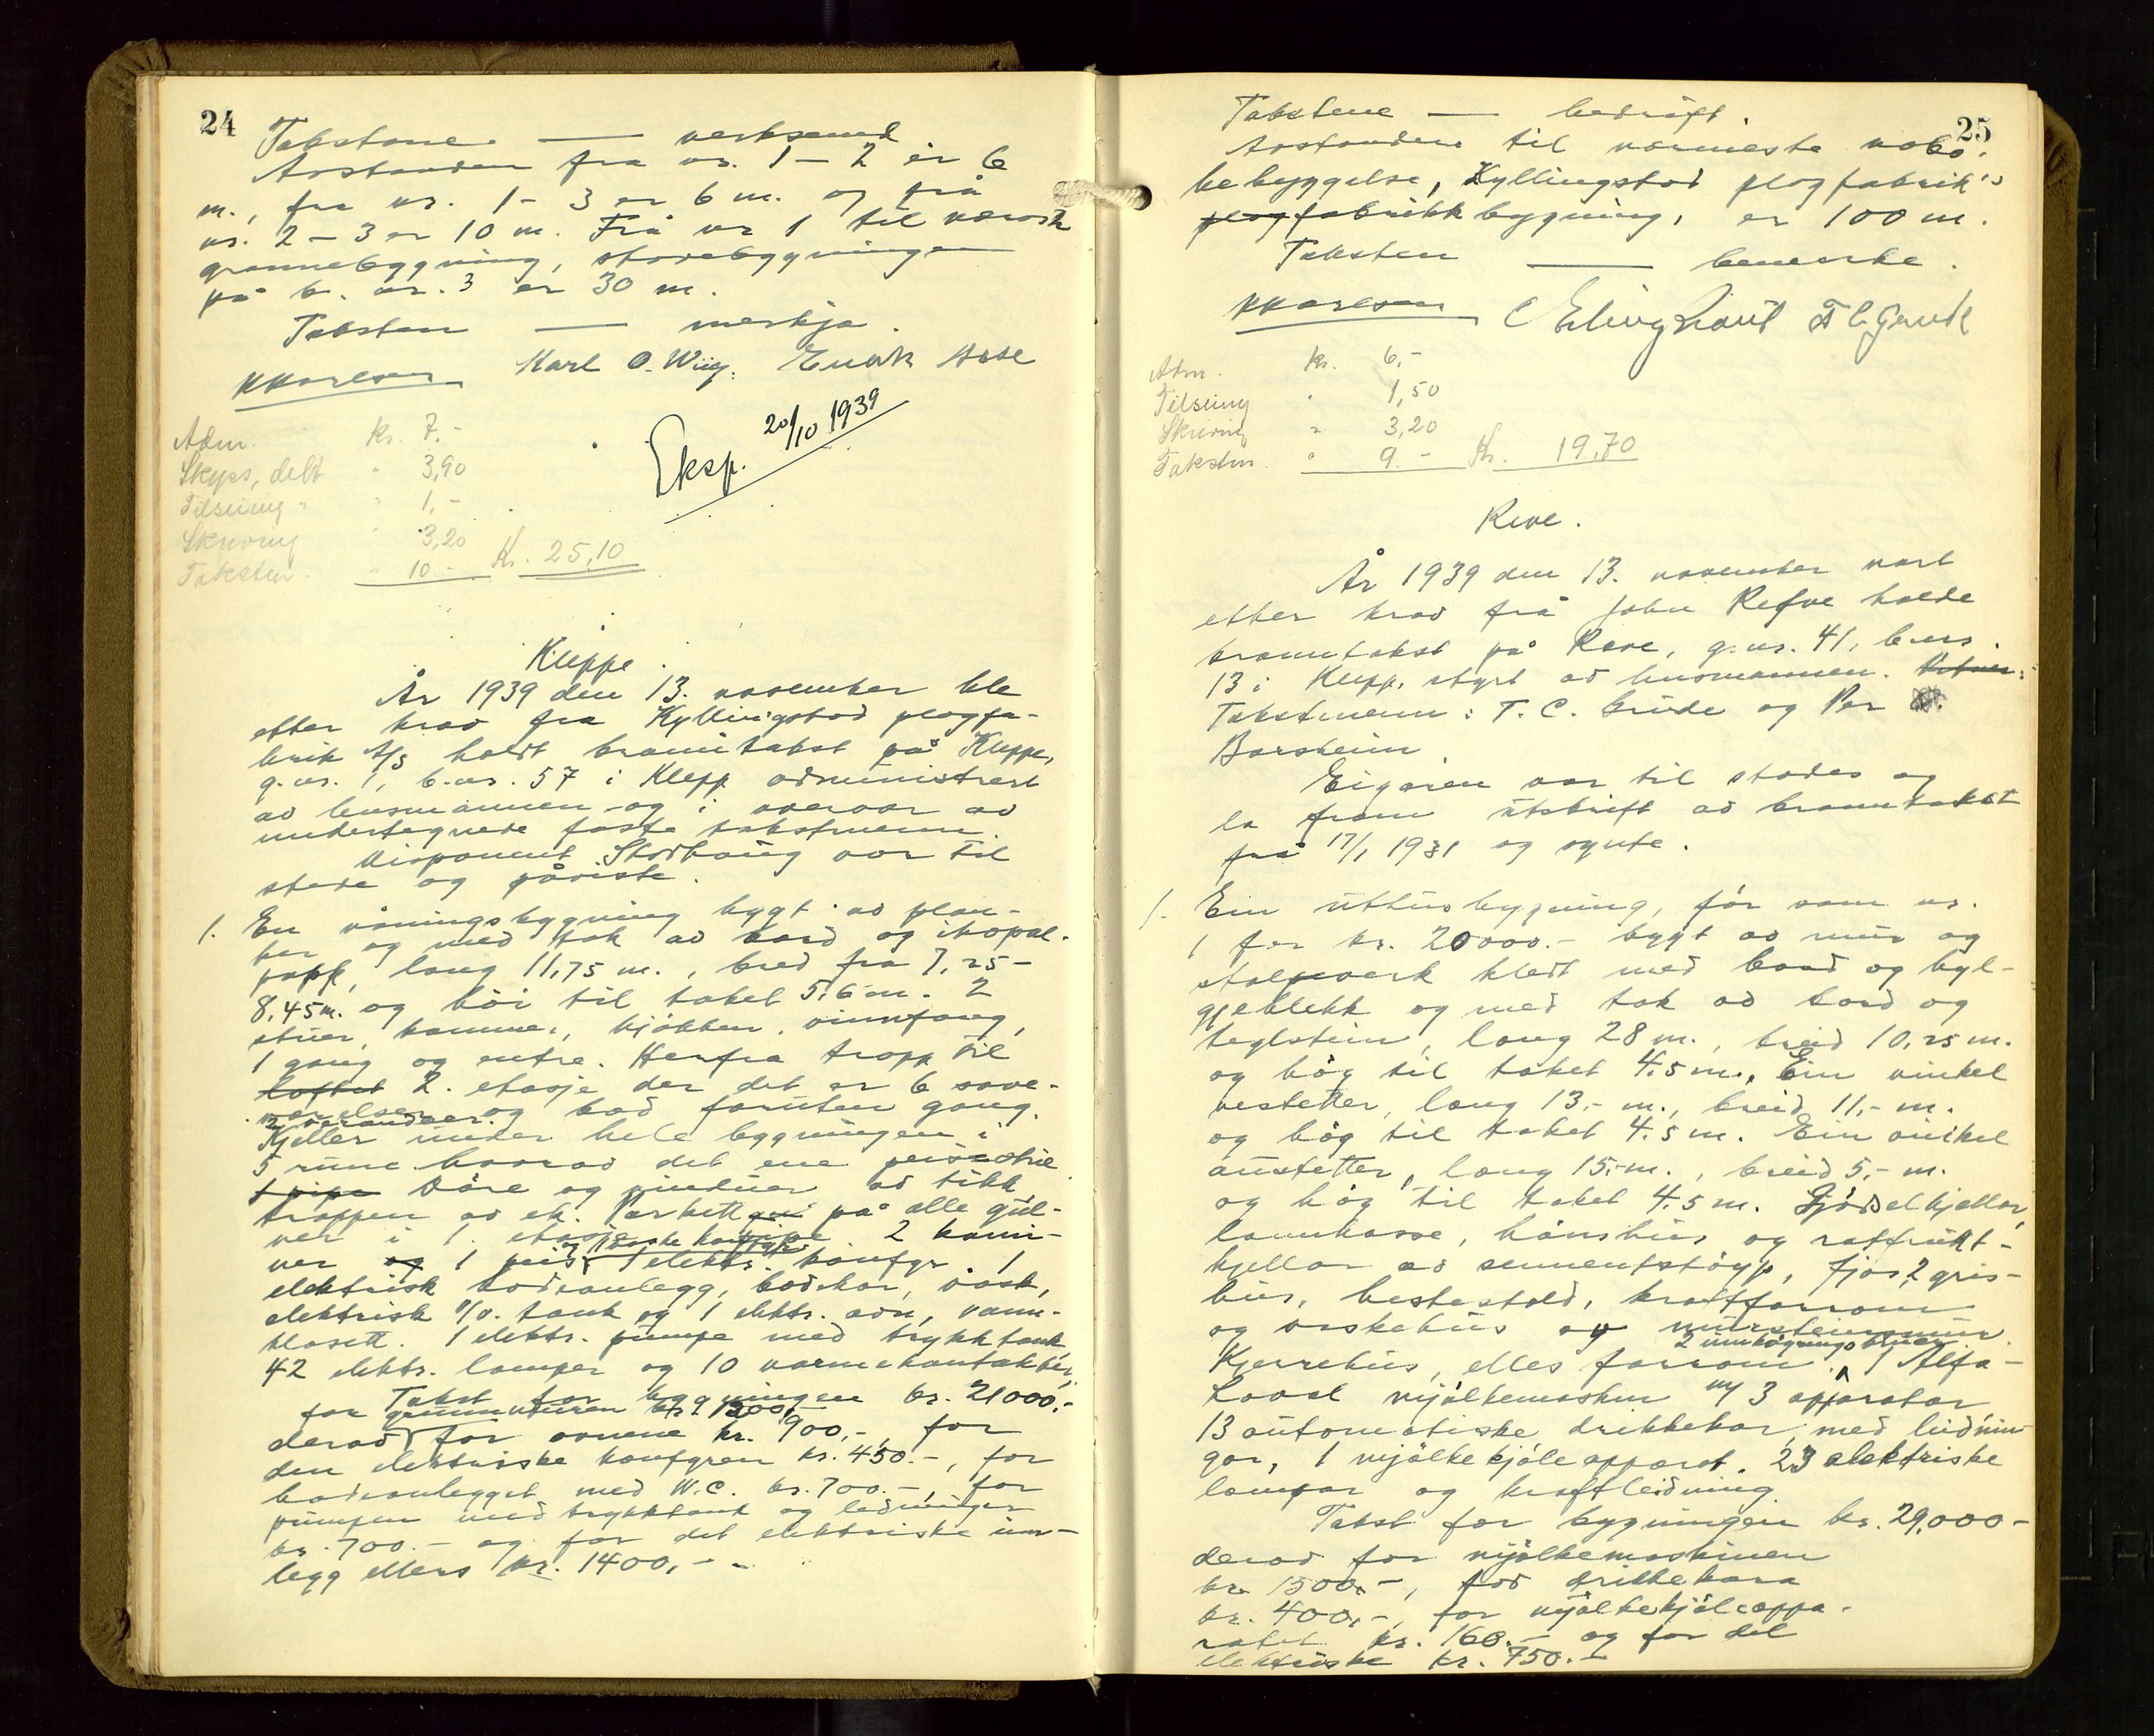 24
Takstane — verksemd
Avstanden fra nr. 1 – 2 er 6
m., fra nr. 1 – 3 er 6 m. og frå
nr. 2 – 3 er 10 m. Frå nr 1 til næraste
grannebygning, stovebygningen
på b. nr. 3 er 30 m.
Taksten — merkja.
Karl O. Wiig.
Adm. kr. 7,-
Skyss, delt " 3,90
Tilseiing " 1,-
Skriving " 3,20
Takstm. " 10 - Kr. 25,10
Eksp. 20/10 1939
Kleppe.
År 1939 den 13. november ble
etter krav fra Kyllingstad plogfa-
brik A/S holdt branntakst på Kleppe,
g.nr. 1, b.nr. 57 i Klepp administrert
av lensmannen og i nærvær av
undertegnede faste takstmenn.
Disponent Stokhaug var til
stede og påviste.
1. En våningsbygning bygt av plan-
ker og med tak av bord og
papp, lang 11,75 m., bred fra 7,25 –
8,45 m. og høi til taket 5,6 m. 2
stuer, kammer, kjøkken, vinnfang,
1 gang og entre. Herfra tropp til
loftet 2. etasje der det er 6 sove-
værelser og bad foruten gang.
2 verandaer.
Kjeller under hele bygningen i
5 rum hvorav det ene peisestue
1 pipe Døre og vinduer av tikk
troppen av ek. Parkett på alle gul-
ver i 1. etasje 2 kami-
ner og 1 peis, 1 elektr. komfyr 1
elektrisk badeanlegg, badekar, vask,
elektrisk v/v. tank og 1 elektr. ovn, vann-
klosett. 1 elektr. pumpe med trykktank
42 elektr. lamper og 10 varmekontakter.
Takst for bygningen kr. 21000,-
for grunnmuren kr. 1300,-
derav for ovnene kr. 900,-, for
den elektriske komfyren kr. 450.-, for
badeanlegget med W.C. kr. 700.-, for
pumpen med trykktank og ledninger
kr. 700.- og for det elektriske inn-
legg ellers kr. 1400,-
25
Takstene — bedrift.
Avstanden til nærmeste nabo-
bebyggelse, Kyllingstad plogfabrik's
plogfabrikkbygning, er 100 m.
Taksten — bemerke.
Adm. kr. 6,-
Tilseiing " 1,50
Skriving " 3,20
Takstm. " 9 - Kr. 19,70
Reve.
År 1939 den 13. november vart
etter krav frå John Refve halde
branntakst på Reve, g.nr. 41, b.nr.
13 i Klepp, styrt av lensmannen.
Takstmenn: T. C. Grude og Per
Borsheim
Eigaren var til stades og
la fram utskrift av branntakst
frå 17/1 1931 og synte.
1. Ein uthusbygning, før som nr.
1 for kr. 20000.- bygt av mur og
stolpeverk kledt med bord og byl-
gjeblekk og med tak av bord og
teglstein, lang 28 m., breid 10,25 m.
og høg til taket 4.5 m., Ein vinkel
vestetter, lang 13,- m., breid 11,- m.
og høg til taket 4.5 m. Ein vinkel
austetter, lang 15,- m., breid 5,- m.
og høg til taket 4.5 m. Gjødselkjellar,
landkasse, hønshus og rotfrukt-
kjellar av sementstøyp, fjøs, gris-
hus, hestestald, kraftforrom
og vaskehus av mursteinsmur.
2 innkøyringsbruer
Kjerrehus, elles forrom. 1 Alfa-
Laval mjølkemaskin m/ 3 apparater
13 automatiske drikkekar, med leidnin-
gar, 1 mjølkekjøleapparat. 23 elektriske
lampar og kraftleidning.
Takst for bygningen kr. 29.000 -
derav for mjølkemaskinen
kr. 1500.-, for drikkekara
kr. 400,-, for mjølkekjøleappa-
ratet kr. 160.- og for det
elektriske kr. 750.-